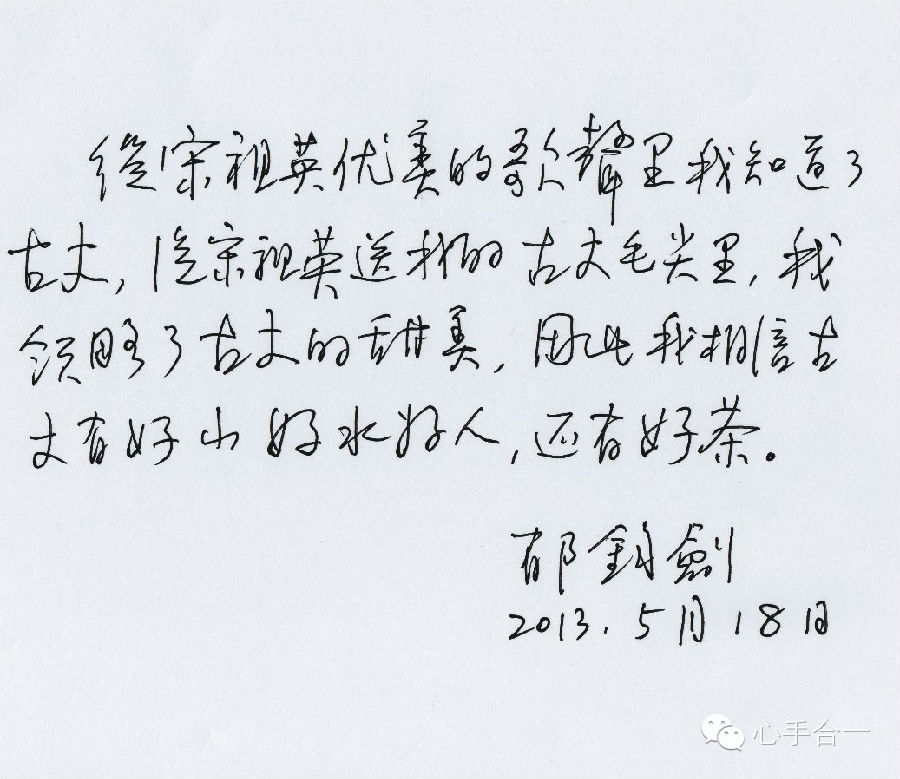 從宋祖英优美的歌聲里我知道了
古丈，從宋祖英送我的古丈毛尖里，我
领略了古丈的甜美，因此我相信古
丈有好山好水好人，还有好茶。
郁钧剑
2013.5月18日
心手合一